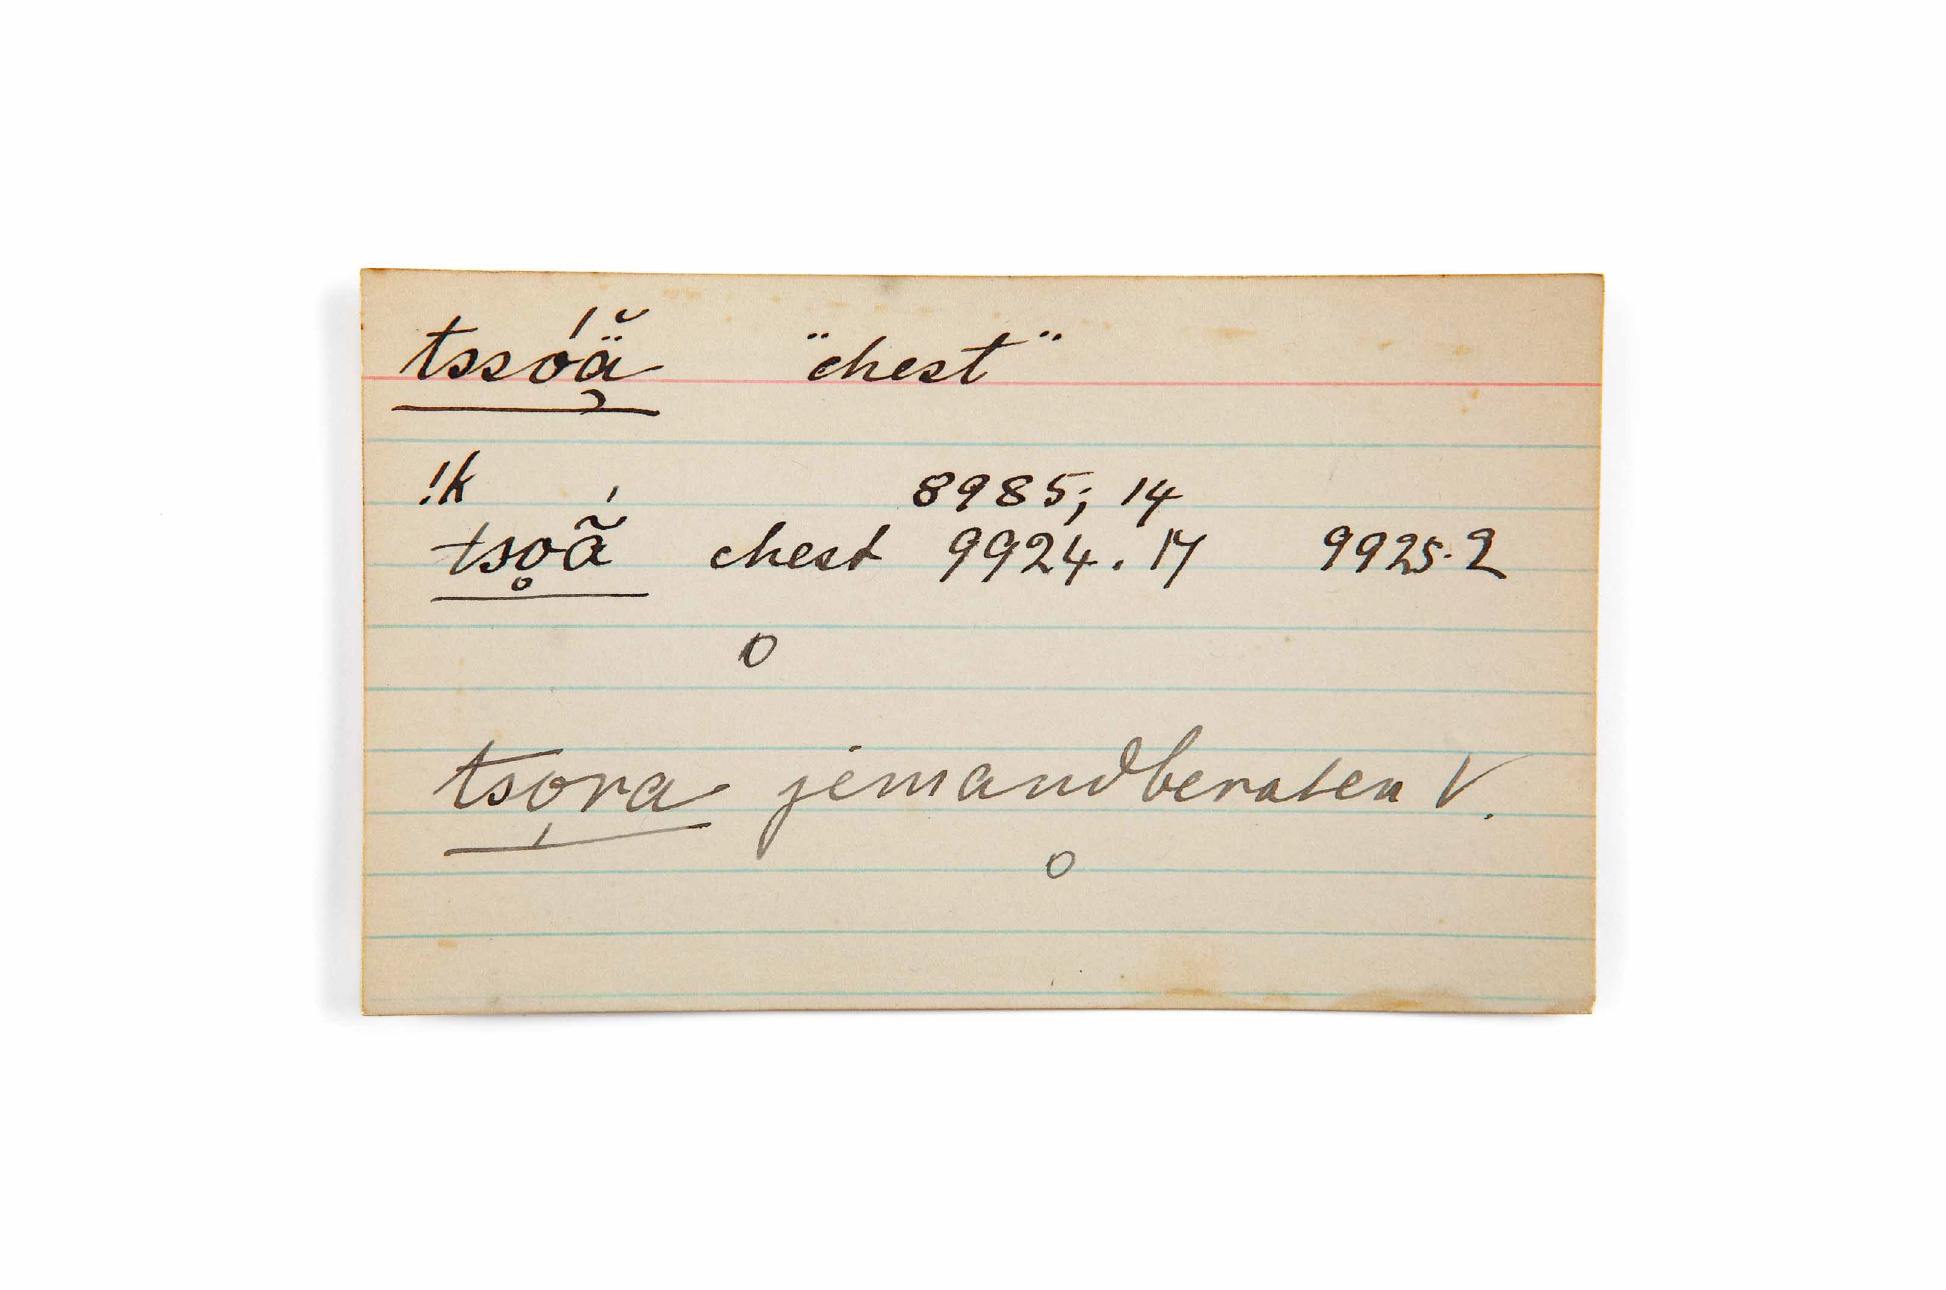 tssóä̯̆ "chest"
!k 8985; 14
tso̥ã́ chest 9924. 17 9925. 2
0
tso̗ra jemand beraten V.
0